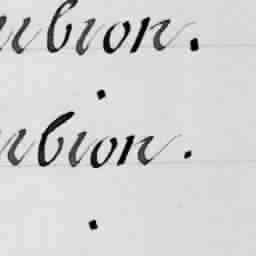 ubion.
ubion.